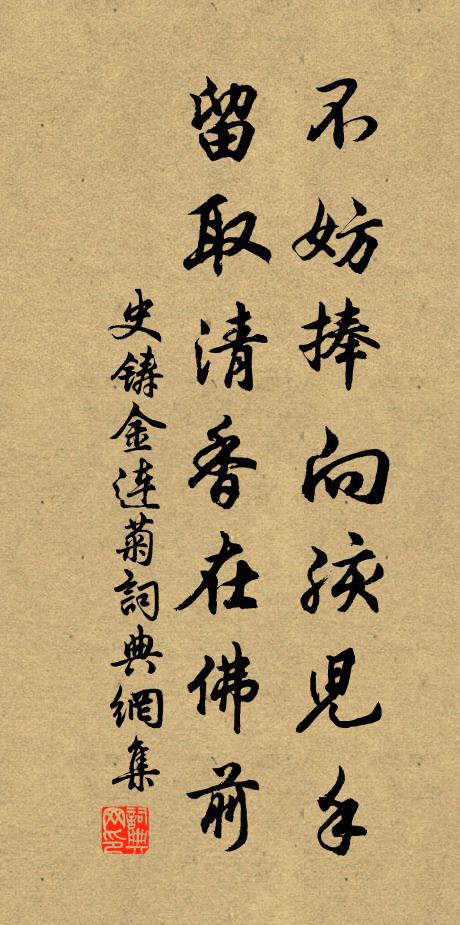 不妨捧向孩児手
留取清香在佛前
史鑄金連菊詞典網集
詞典網印